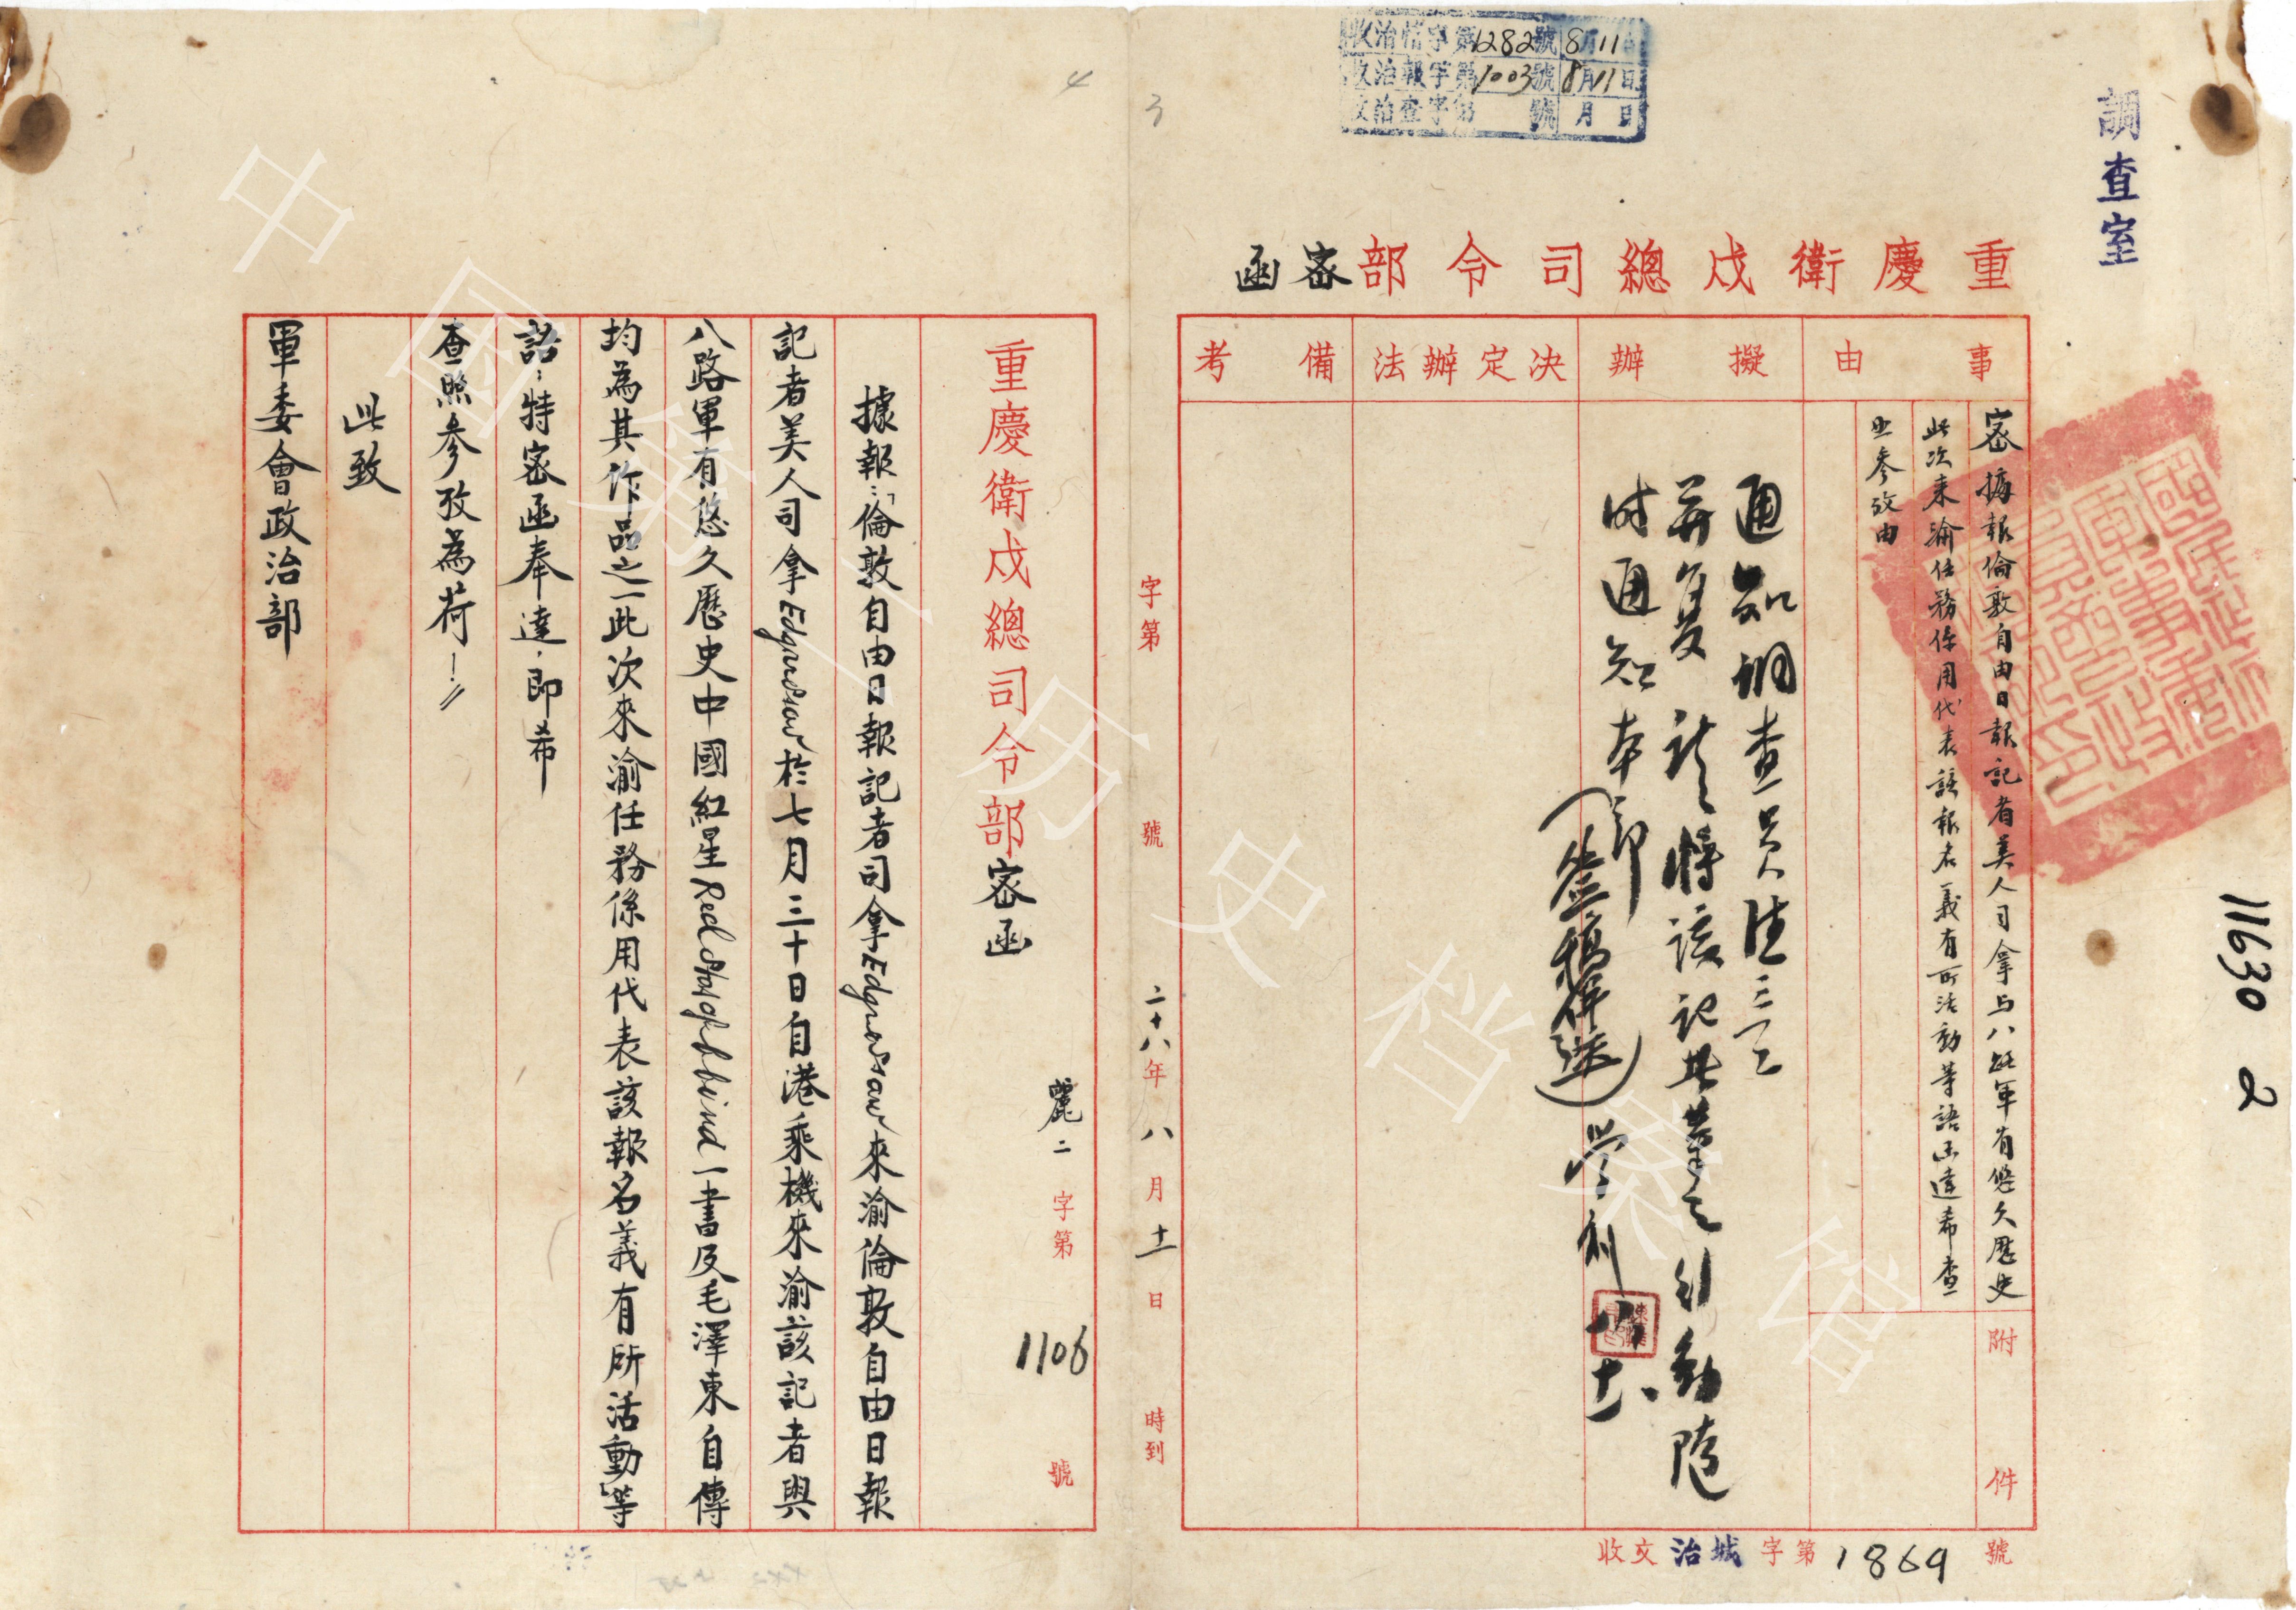 調查室
收治情字第1282號8月11日
收治報字第1003號8月11日
收治查字第 號 月 日
重慶衛戍總司令部密函
事由
擬辦
決定辦法
備考
密 據報倫敦自由日報記者美人司拿与八路軍有悠久歷史
此次来渝任務係用代表該報名義有所活動等語函達希查
照参攷由
附件
通知調查員注意
并复 謂將該記者等之行動隨
时通知本部
(签稿併送)
收文治城字第1869號
字第 號 二十八年八月十一日 時到
11630 2
3
4
重慶衛戍總司令部密函
麗二字第1106號
據報:「倫敦自由日報記者司拿Edgar Snow來渝倫敦自由日報
記者美人司拿Edgar Snow於七月三十日自港乘機來渝該記者與
八路軍有悠久歷史中國紅星Red Star of China一書及毛澤東自傳
均為其作品之一此次來渝任務係用代表該報名義有所活動」等
語;特密函奉達,即希
查照參攷為荷!
此致
軍委會政治部
中国第二历史档案馆